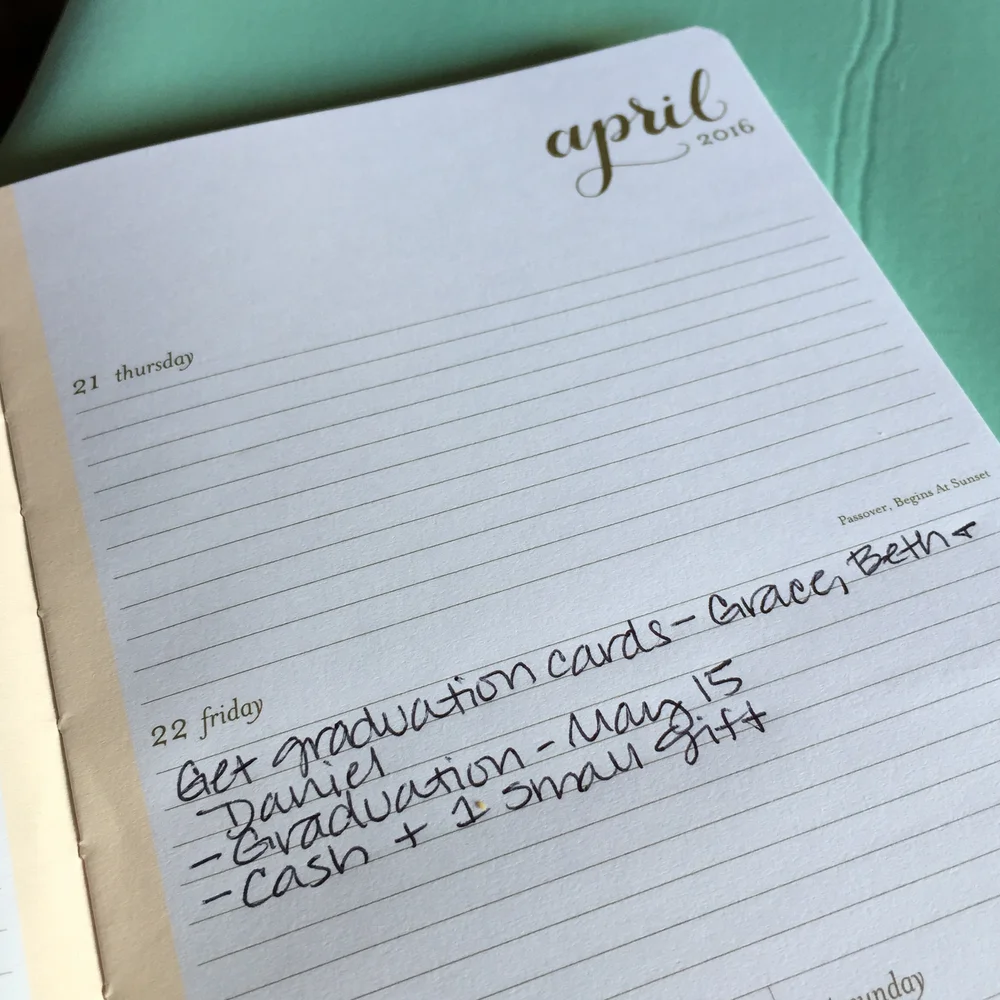 april
2016
21 thursday
Passover, Begins At Sunset
22 friday
Get graduation cards - Grace, Beth +
Daniel
- Graduation - May 15
- Cash + 1 small gift